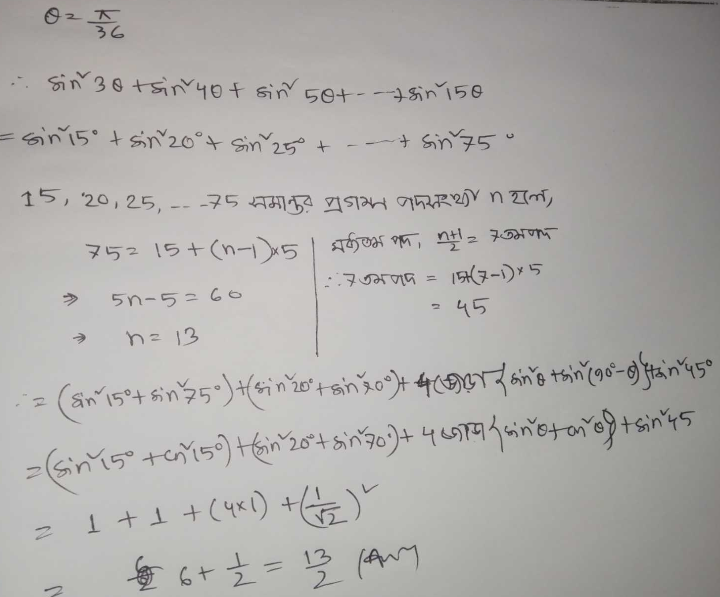 θ = π/36
∴ sin²3θ + sin²4θ + sin²5θ + - - - + sin²15θ
= sin²15° + sin²20° + sin²25° + - - - + sin²75°
15, 20, 25, - - - 75 সমান্তর প্রগমন পদসংখ্যা n হলে,
75 = 15 + (n-1)×5
⇒ 5n-5 = 60
⇒ n = 13
মধ্যতম পদ, (n+1)/2 = 7তম পদ
∴ 7তম পদ = 15+(7-1)×5
= 45
∴ = (sin²15° + sin²75°) + (sin²20° + sin²70°) + 4 জোড়া {sin²θ + sin²(90°-θ)} + sin²45°
= (sin²15° + cos²15°) + (sin²20° + sin²70°) + 4 জোড়া {sin²θ + cos²θ} + sin²45
= 1 + 1 + (4×1) + (1/√2)²
= 6 + 1/2 = 13/2 (Ans)